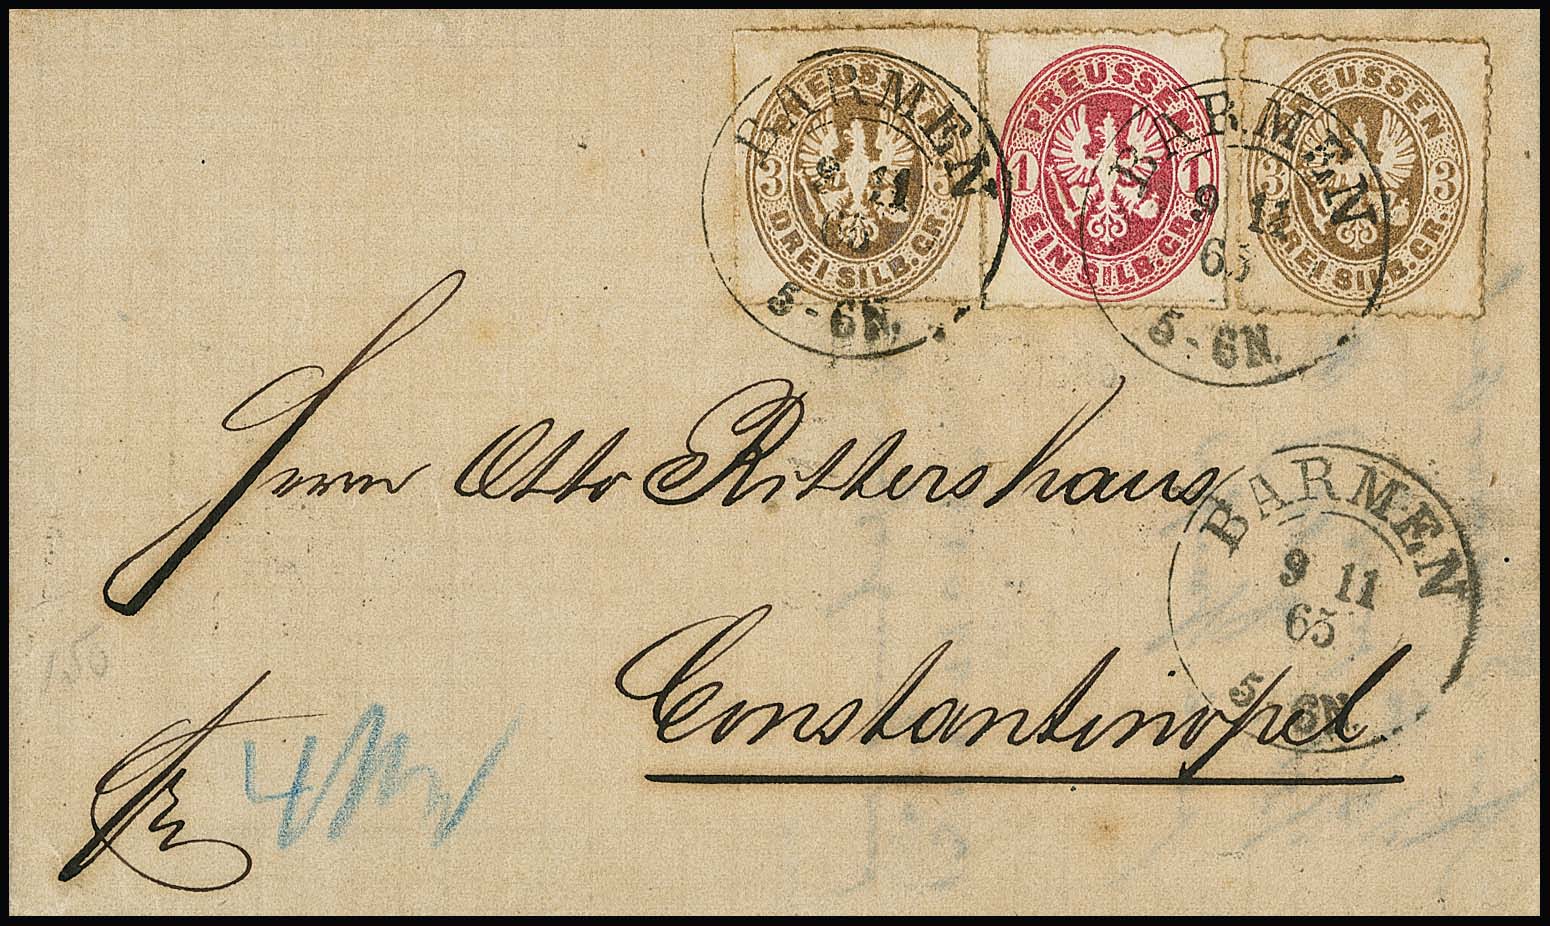 PREUSSEN
3 3
DREI SILB. GR.
PREUSSEN
1 1
EIN SILB. GR.
PREUSSEN
3 3
DREI SILB. GR.
BARMEN
9 11
65
5 - 6 N.
BARMEN
9 11
65
5 - 6 N.
Herrn Otto Rittershaus
BARMEN
9 11
65
5 - 6 N.
Constantinopel.
fr
4